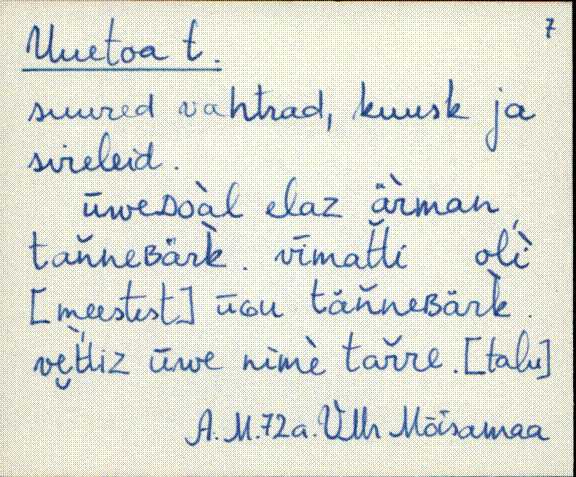 7
Uuetoa t.
suured vahtrad, kuusk ja
sireleid.
ūweᴅoàl elaz ä̀rman,
taňneʙärk̀. vīmat̆ti olì
[meestest] ūɢu täňneʙärk̀.
vet̀tiz ūwe nimè tařre. [talu]
A. M. 72 a. Ülh Mõisamaa